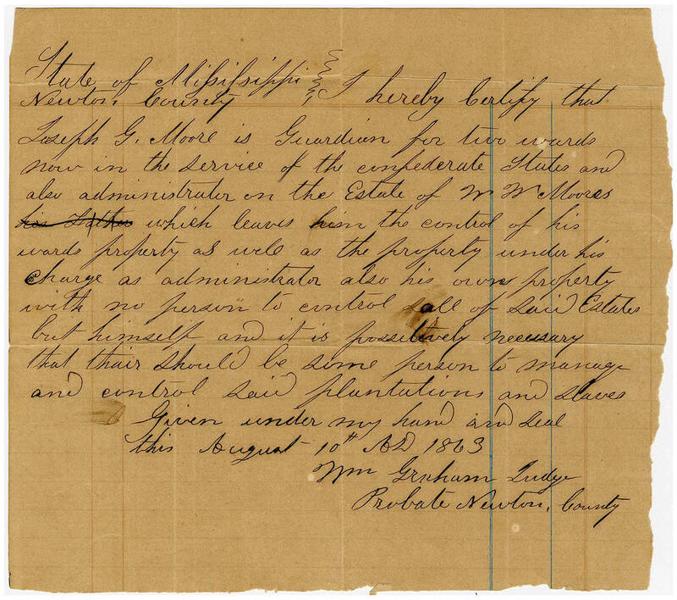 State of Missisippi
Newton, County } I hereby Certify that
Joseph G. Moore is Guardian for two wards
now in the service of the confederate States and
also administrator on the Estate of W W Moores
his Father which leaves him the control of his
wards property as well as the property under his
Charge as administrator also his own property
with no person to control all of said Estates
but himself and it is possitively necessary
that thair should be some person to manage
and control said plantations and slaves
Given under my hand and seal
this August 10th AD 1863
Wm Graham Judge
Probate Newton, County